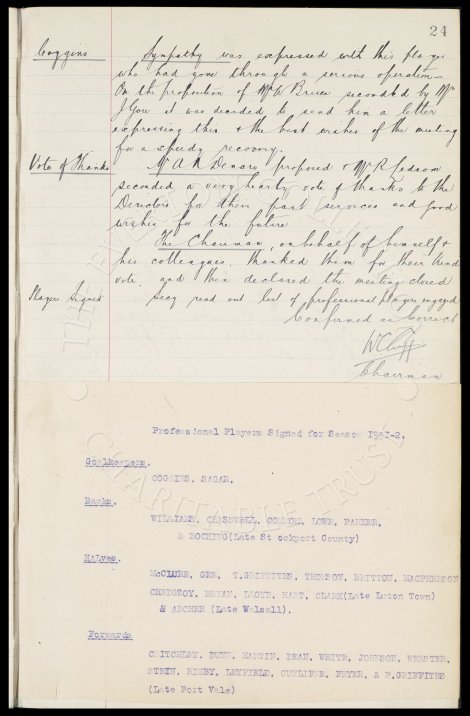 24
Coggins Sympathy was expressed with this player
who had gone through a serious operation—
On the proposition of Mr W Bruce seconded by Mr
J Gore it was decided to send him a letter
expressing this & the best wishes of the meeting
for a speedy recovery.
Vote of Thanks Mr A R Denaro proposed & Mr R
seconded a very hearty vote of thanks to the
Directors for their past services and good
wishes for the future
The Chairman, on behalf of himself &
his colleagues, thanked them for their kind
vote. and then declared the meeting closed
Players Signed Secy read out list of professional players engaged
Confirmed as Correct
W C Cuff
Chairman
Professional Players Signed for Season 1931-2.
Goalkeepers.
COGGINS, SAGAR,
Backs.
WILLIAMS, CRESSWELL, COMMON, LOWE, PARKER,
& BOCKING(Late St ockport County)
HAlves.
McCLURE, GEE, T.GRIFFITHS, THOMSON, BRITTON, MACPHERSON
CHEDGZOY, BRYAN, LLOYD, HART, CLARK(Late Luton Town)
& ARCHER (Late Walsall).
Forwards
CRITCHLEY, DUNN, MARTIN, DEAN, WHITE, JOHNSON, WEBSTER,
STEIN, RIGBY, LEYFIELD, CUNLIFFE, FRYER, & P.GRIFFITHS
(Late Port Vale)
CHARITABLE TRUST